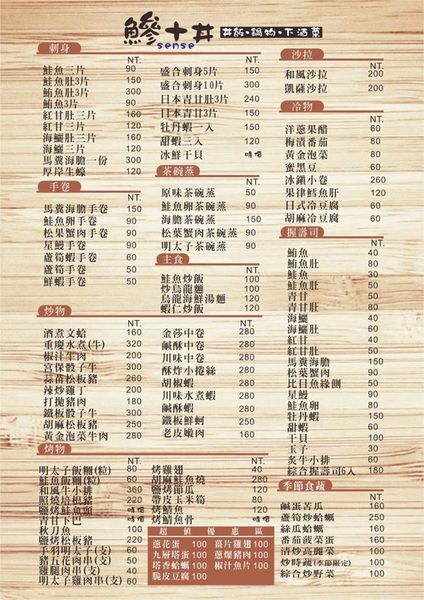 鰺十丼
sense
丼飯•鍋物•下酒菜
刺身
NT.
鮭魚三片 90
鮭魚肚3片 150
鮪魚肚3片 300
鮪魚3片 90
紅甘肚三片 160
紅甘三片 120
海鱺肚三片 160
海鱺三片 120
馬糞海膽一份 300
厚岸生蠔 120
手卷
NT.
馬糞海膽手卷 150
鮭魚卵手卷 90
松葉蟹肉手卷 90
星鰻手卷 60
蘆筍蝦手卷 60
蘆筍手卷 50
鮮蝦手卷 50
NT.
盛合刺身5片 150
盛合刺身10片 300
日本青甘肚3片 240
日本青甘3片 150
牡丹蝦一入 150
甜蝦三入 120
冰鮮干貝 時價
茶碗蒸
NT.
原味茶碗蒸 50
鮭魚卵茶碗蒸 90
海膽茶碗蒸 150
松葉蟹肉茶碗蒸 90
明太子茶碗蒸 90
主食
NT.
鮭魚炒飯 100
炒烏龍麵 100
烏龍海鮮湯麵 120
蝦仁炒飯 100
沙拉
NT.
和風沙拉 200
凱薩沙拉 200
冷物
NT.
洋蔥果醋 60
梅漬番茄 80
黃金泡菜 60
蜜黑豆 60
冰鎮小卷 260
果律鱈魚肝 120
日式冷豆腐 60
胡麻冷豆腐 60
握壽司
NT.
鮪魚 40
鮪魚肚 80
鮭魚 30
鮭魚肚 50
青甘 50
青甘肚 80
海鱺 40
海鱺肚 60
紅甘 40
紅甘肚 60
馬糞海膽 150
松葉蟹肉 60
比目魚緣側 50
星鰻 60
鮭魚卵 80
牡丹蝦 150
甜蝦 60
干貝 100
玉子 30
炙牛小排 60
綜合握壽司6入 180
炒物
NT.
酒煮文蛤 160
重慶水煮(牛) 320
椒汁牛肉 180
宮保骰子牛 300
蒜苗松板豬 240
辣炒雞丁 200
打拋豬肉 180
鐵板骰子牛 300
胡麻松板豬 240
黃金泡菜牛肉 280
NT.
金莎中卷 280
鹹酥中卷 280
川味中卷 280
酥炸小捲絲 280
胡椒蝦 280
川味水煮蝦 280
鹹酥蝦 280
鐵板鮮蚵 220
老皮嫩肉 100
烤物
NT.
明太子飯糰(粒) 80
鮭魚飯糰(粒) 60
和風牛小排 360
照燒培根豬 220
鹽烤鮭魚頭 時價
青甘下巴 時價
秋刀魚 100
鹽烤松板豬 220
手羽明太子(支) 60
豬五花肉串(支) 50
雞腿肉串(支) 50
明太子雞肉串(支) 60
NT.
烤雞翅 40
胡麻鮭魚燒 280
鹽烤節瓜 120
帶皮玉米筍 100
烤鯖魚 時價
烤鯖魚骨 時價
超值優惠區
蔥花蛋 100 薑片雞翅 100
九層塔蛋 100 蔥爆豬肉 100
塔香蛤蠣 100 椒汁魚片 100
脆皮豆腐 100
季節食蔬
NT.
鹹蛋苦瓜 150
蘆筍炒蛤蠣 250
絲瓜蛤蠣 180
番茄菠菜蛋 180
清炒高麗菜 150
炒時蔬(季節限定) 150
綜合炒野菜 180